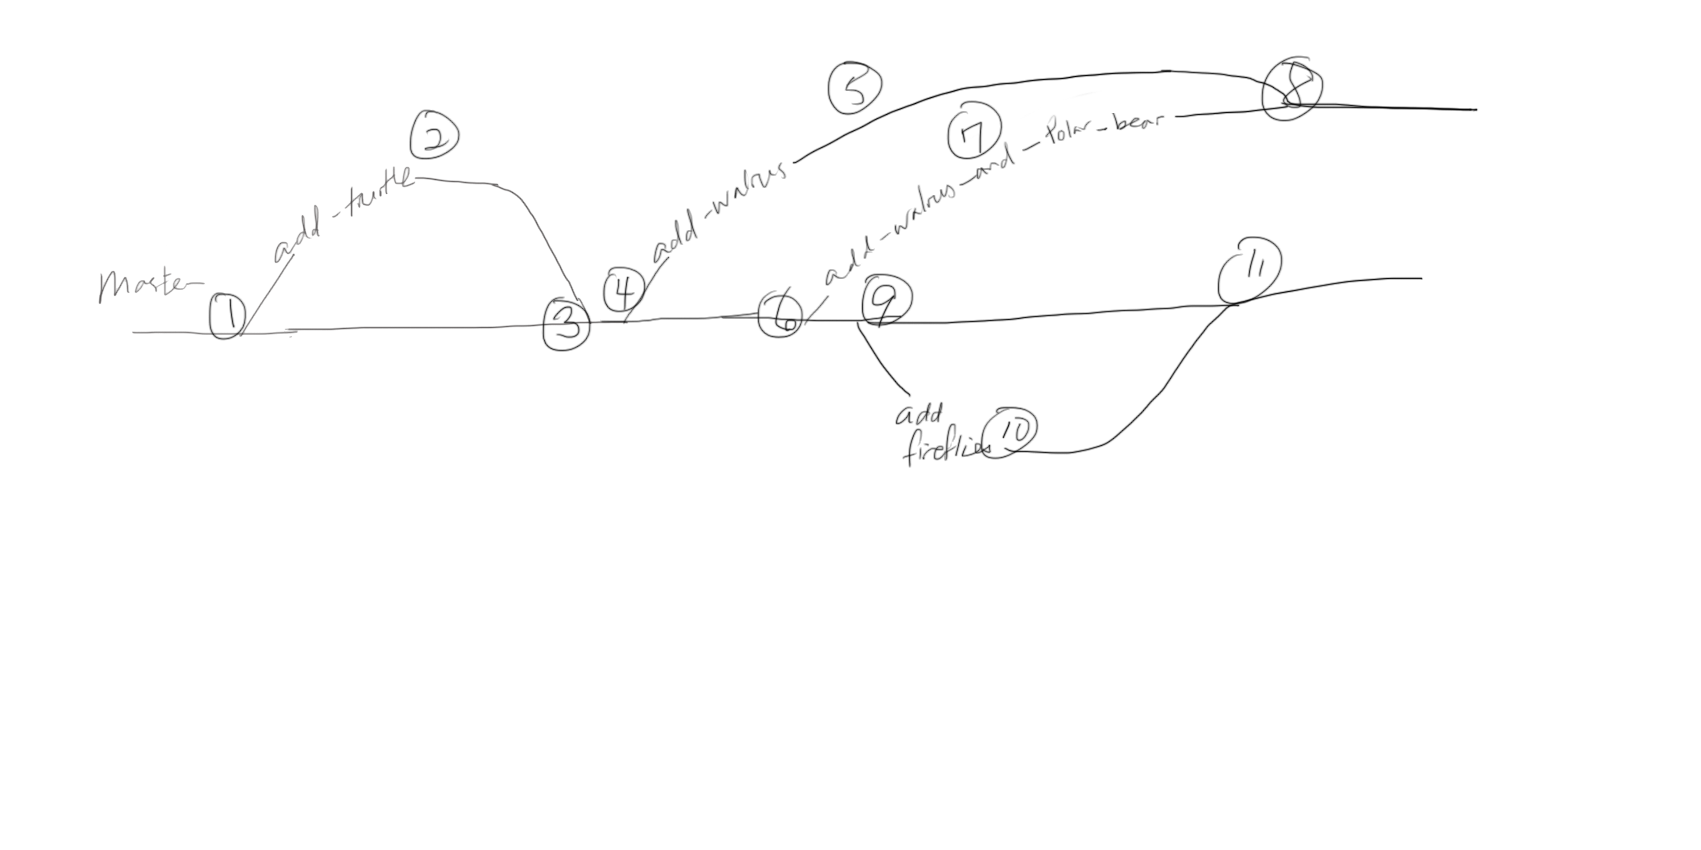 Master
1
add-turtle
2
3
4
add-walrus
5
6
add-walrus-and-Polar-bear
7
8
9
add
fireflies
10
11